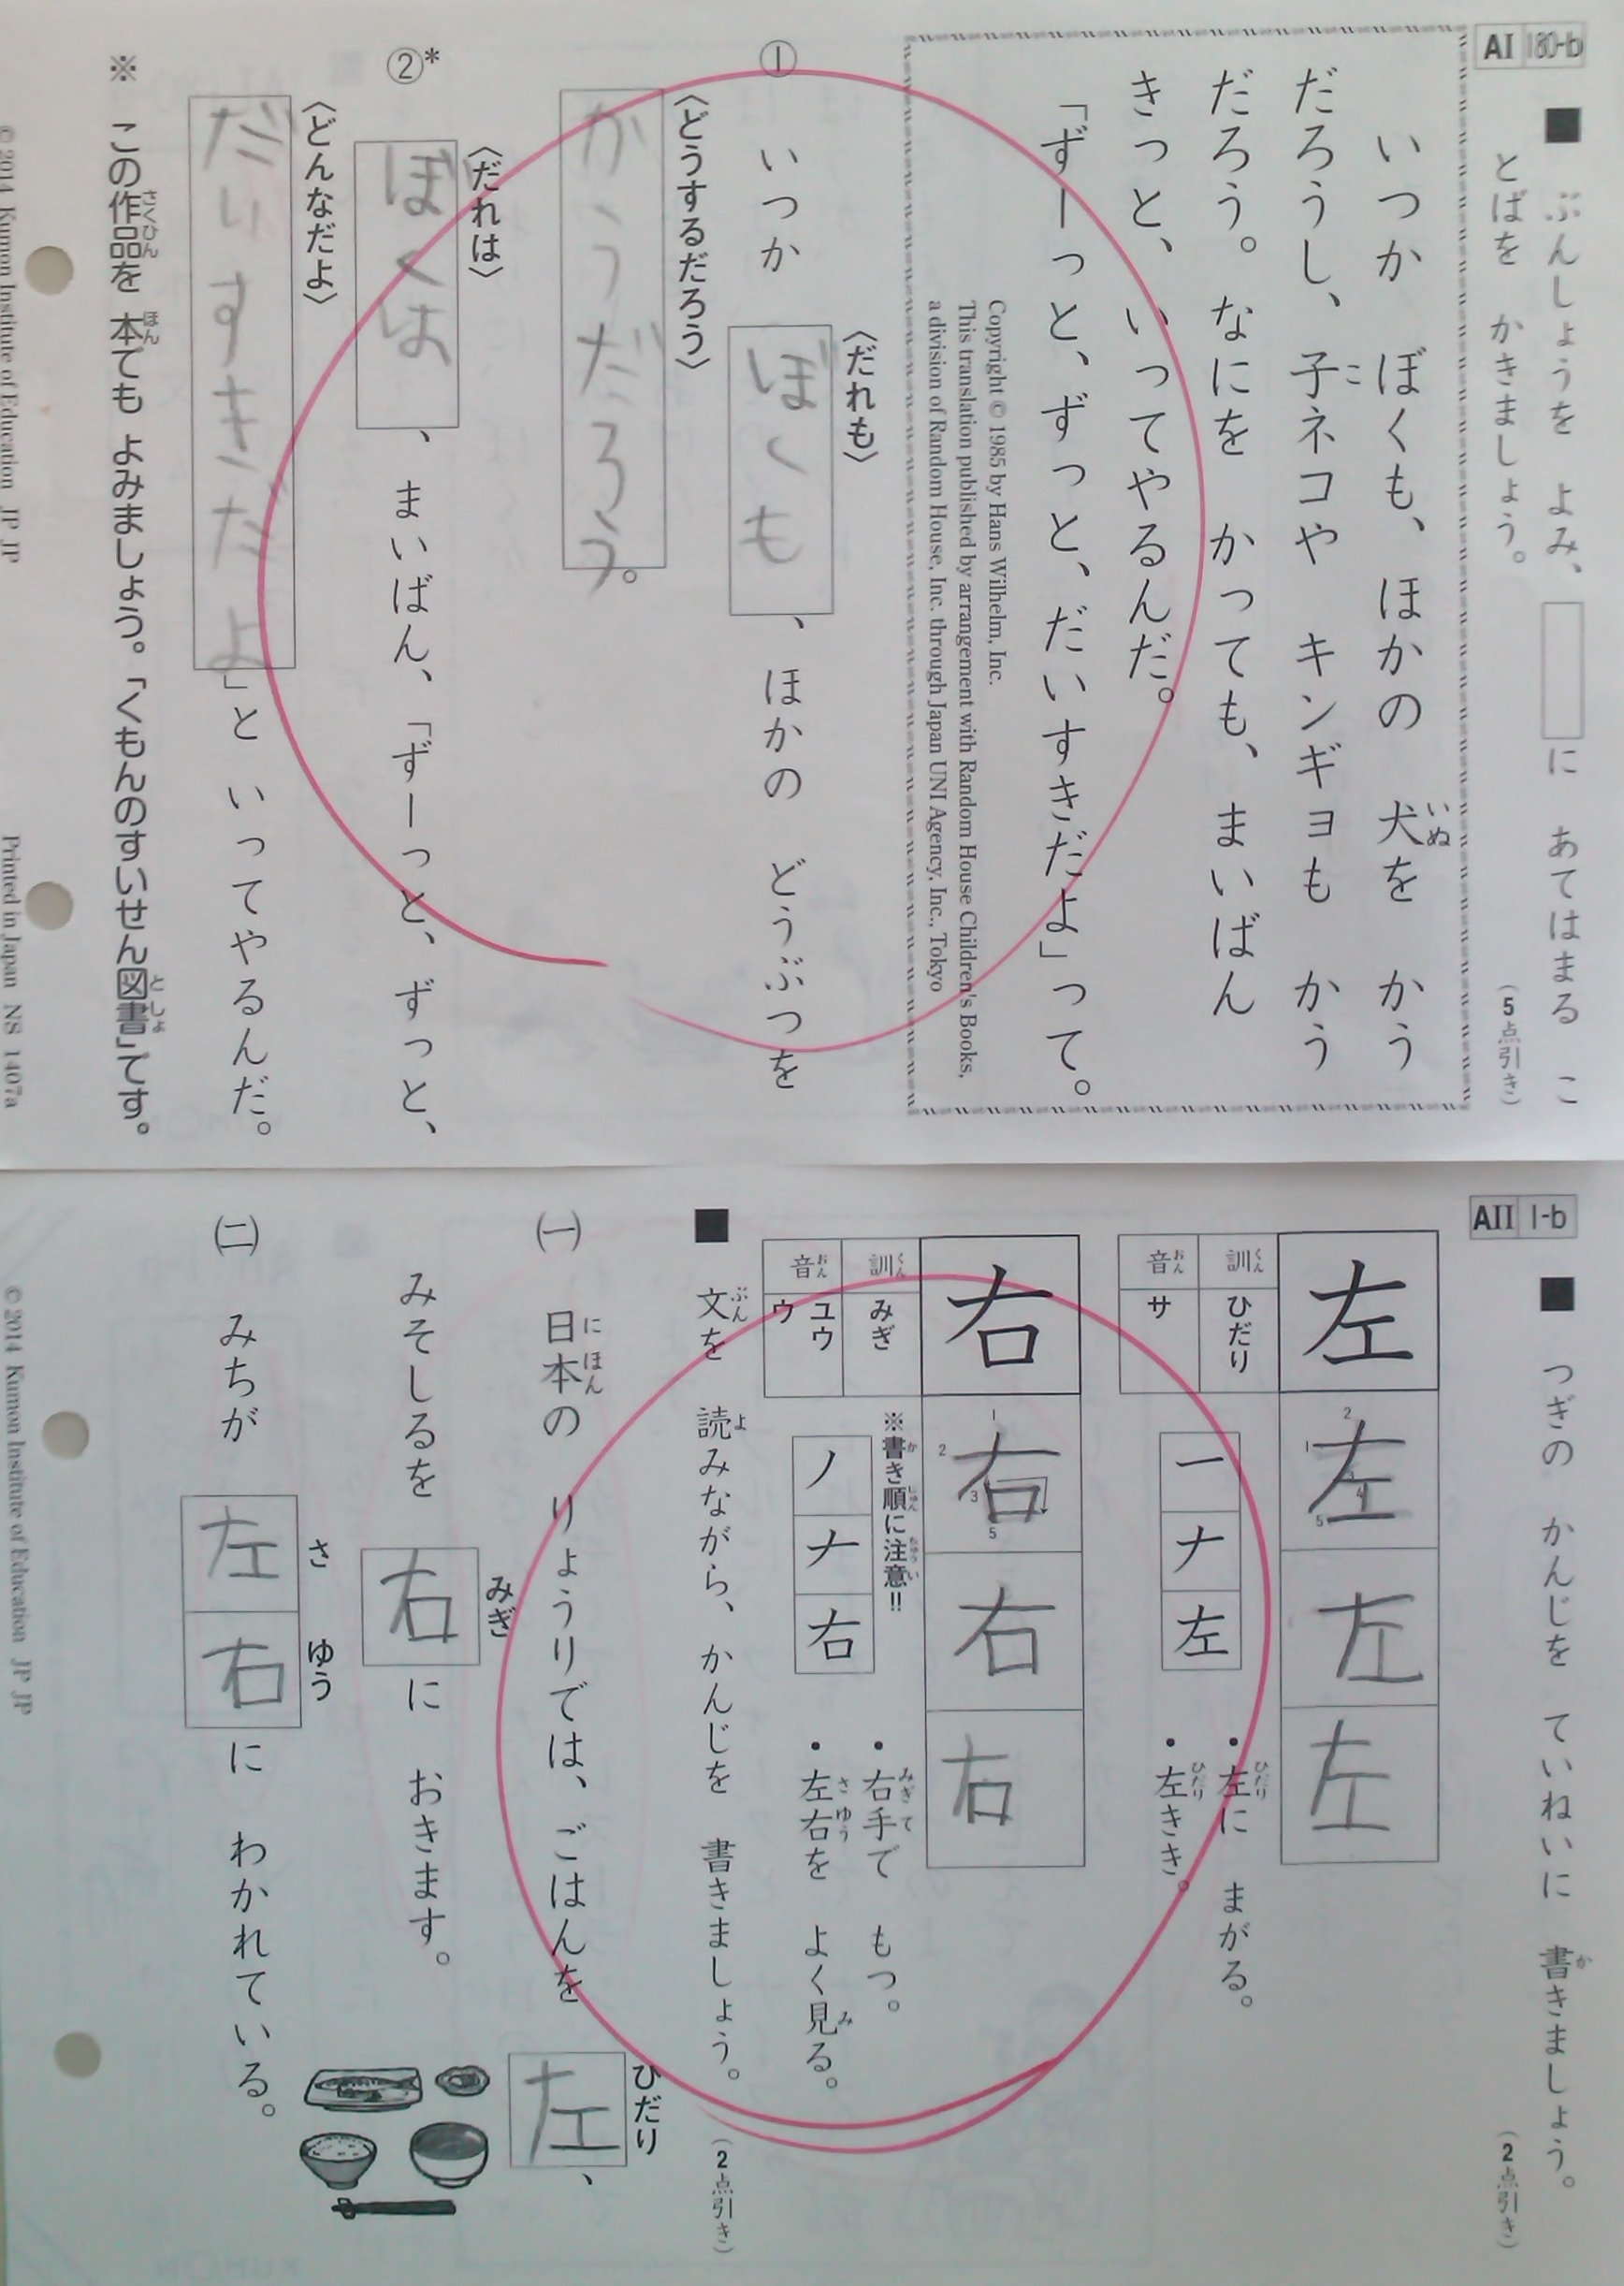 AI 180-b
■ ぶんしょうを よみ、□に あてはまる こ
とばを かきましょう。
(5点引き)
いつか ぼくも、ほかの 犬を かう
いぬ
だろうし、子ネコや キンギョも かう
こ
だろう。なにを かっても、まいばん
きっと、いってやるんだ。
「ずーっと、ずっと、だいすきだよ」って。
Copyright © 1985 by Hans Wilhelm, Inc.
This translation published by arrangement with Random House Children's Books,
a division of Random House, Inc. through Japan UNI Agency, Inc., Tokyo
〈だれも〉
① いつか ぼくも、ほかの どうぶつを
〈どうするだろう〉
かうだろう。
〈だれは〉
②* ぼくは、まいばん、「ずーっと、ずっと、
〈どんなだよ〉
だいすきだよ」と いってやるんだ。
※ この作品を 本でも よみましょう。「くもんのすいせん図書」です。
さくひん ほん としょ
© 2014 Kumon Institute of Education JP JP
Printed in Japan NS 1407a
AII 1-b
■ つぎの かんじを ていねいに 書きましょう。
か
(2点引き)
左 左 左 左
訓 ひだり
くん
音 サ
おん
一 ナ 左
・左に まがる。
ひだり
・左きき。
ひだり
右 右 右 右
訓 みぎ
くん
音 ユウ
おん
ウ
※書き順に注意!!
か じゅん ちゅうい
ノ ナ 右
・右手で もつ。
みぎて
・左右を よく見る。
さゆう み
■ 文を 読みながら、かんじを 書きましょう。
ぶん よ
(2点引き)
㈠ 日本の りょうりでは、ごはんを 左、
にほん ひだり
みそしるを 右に おきます。
みぎ
㈡ みちが 左右に わかれている。
さ ゆう
© 2014 Kumon Institute of Education JP JP